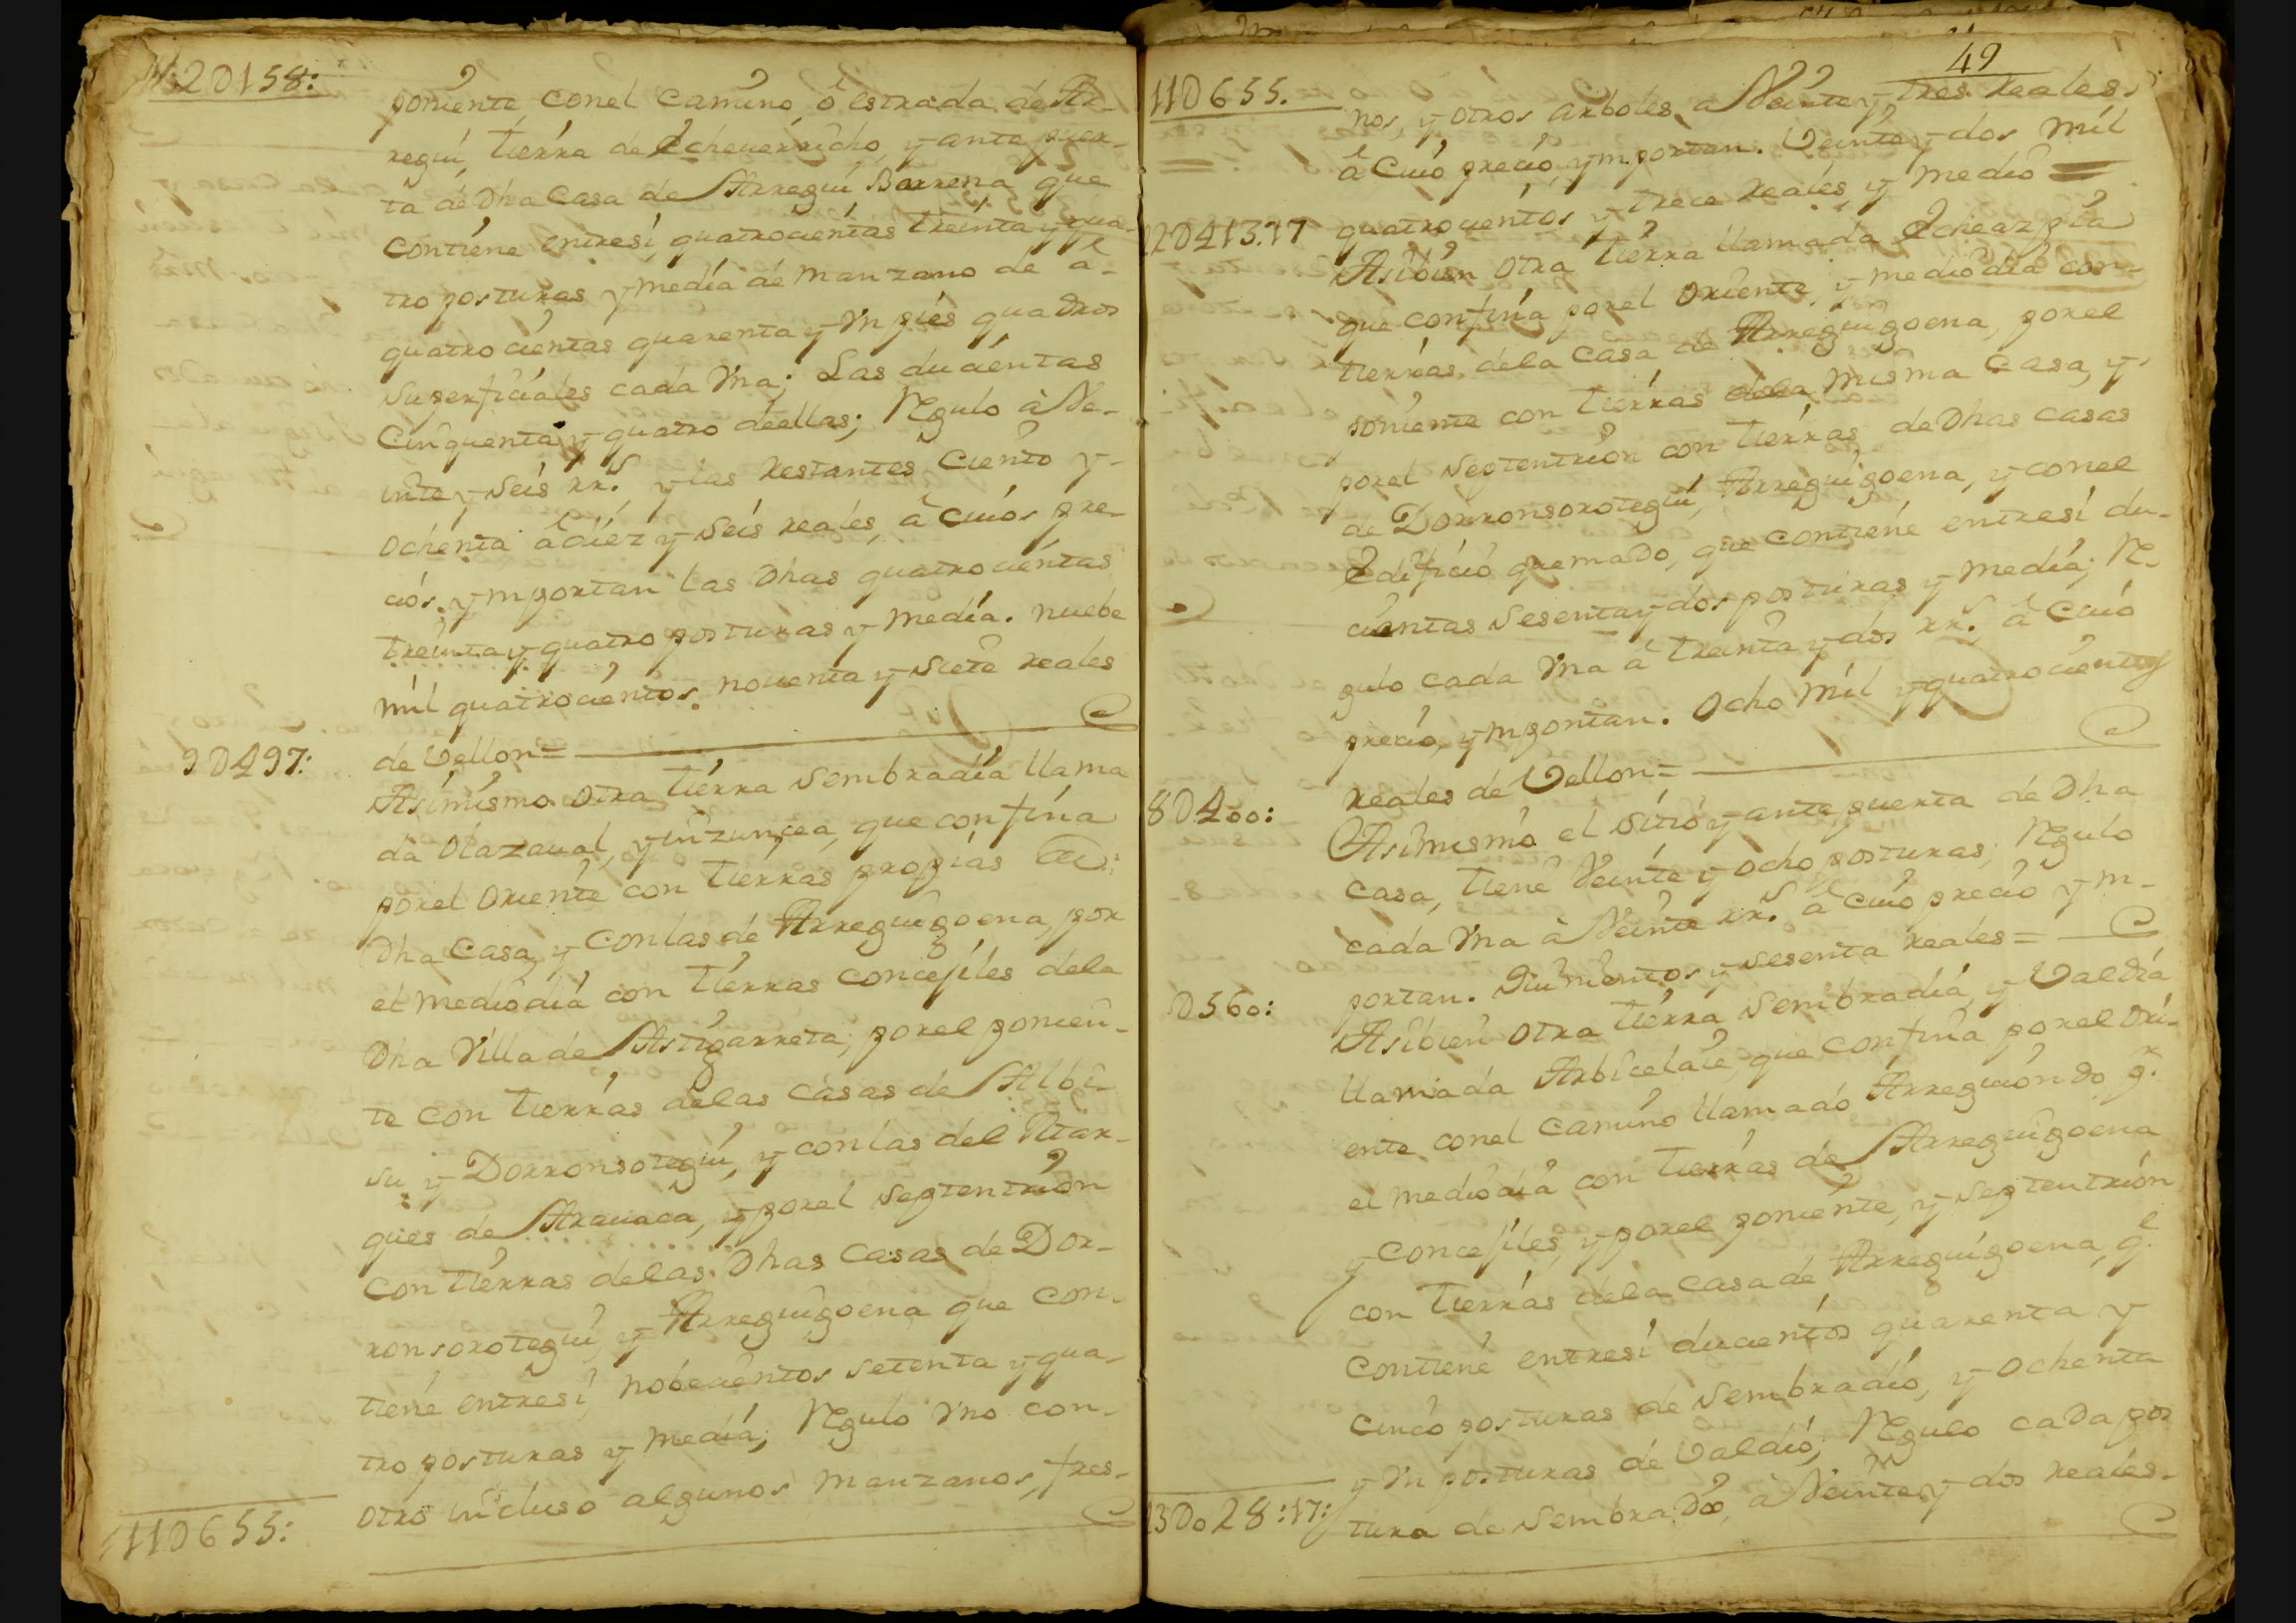 2D158:
poniente, conel camino, ô estrada de Ar-
regui, tierra de Echeuerricho, y ante puer-
ta de Dha Casa de Arregui Barrena que
contiene entresi, quatrocientas treinta y qua-
tro posturas y media de manzano de a-
quatrocientas quarenta y Vn pies quadros
superficiales cada Vna; Las ducientas
Cinquenta y quatro deellas; Rgulo à Ve-
inte y seis rr.s y las restantes Ciento y-
Ochenta à diez y seis reales, à cuios pre-
cios, ymportan las Dhas quatrocientas
treinta y quatro posturas y media. nuebe
mil quatrocientos. nouenta y siete reales
9D497: de Vellon=
Asimismo otra tierra sembradia llama
da Olazaual, yinzuncea, que confina
porel Oriente con tierras propias de:
Dha Casa, y Conlas de Arreguigoena, por
el mediodia con tierras concejiles dela
Dha Villa de Astigarreta; porel ponien-
te con tierras delas casas de Albi-
su y Dorronsotegui, y conlas del Mar-
ques de Arauaca, y porel septentrion
con tierras delas Dhas Casas de Dor-
ronsorotegui, y Arreguigoena que con-
tiene entresi, nobecientos setenta y qua-
tro posturas y media; Rgulo Vno con-
otro incluso algunos manzanos, fres-
110655:
49
110655.
nos, y otros arboles, a Veinte y tres reales,
â Cuio precio, ymportan. Veinte y dos mil
quatrocientos y trece reales y medio =
22D413.17
Asibien otra tierra llamada Echeazpia
que confina porel oriente, y mediodia con-
tierras, dela casa de Arreguigoena, porel
poniente con tierras dela misma Casa, y
porel septentrion con tierras de Dhas casas
de Dorronsorotegui, Arreguigoena, y conel
Edificio quemado, que contiene entresi du-
cientas sesenta y dos posturas y media; R-
gulo cada Vna à treinta y dos rr.s à Cuio
precio, ymportan. Ocho mil y quatrocientos
reales de Vellon=
8D400:
Asimismo el sitio y ante puerta de Dha
casa, tiene Veinte y ocho posturas; Rgulo
cada Vna à Veinte rr.s à cuio precio ym-
portan. Quinientos y sesenta reales=
D560:
Asibien otra tierra sembradia, y Valdia
llamada Arbicelaie, que confina porel Ori-
ente conel camino llamado Arreguiondo p.r
el mediodia con tierras de Arreguigoena
y concejiles, y porel poniente, y septentrion
con tierras dela casa de Arreguigoena, q.e
contiene entresi ducientos quarenta y
cinco posturas de sembradio, y ochenta
y Vn posturas de Valdio; Rgulo cada pos
tura de sembradio, à Veinte y dos reales-
23D028:17: